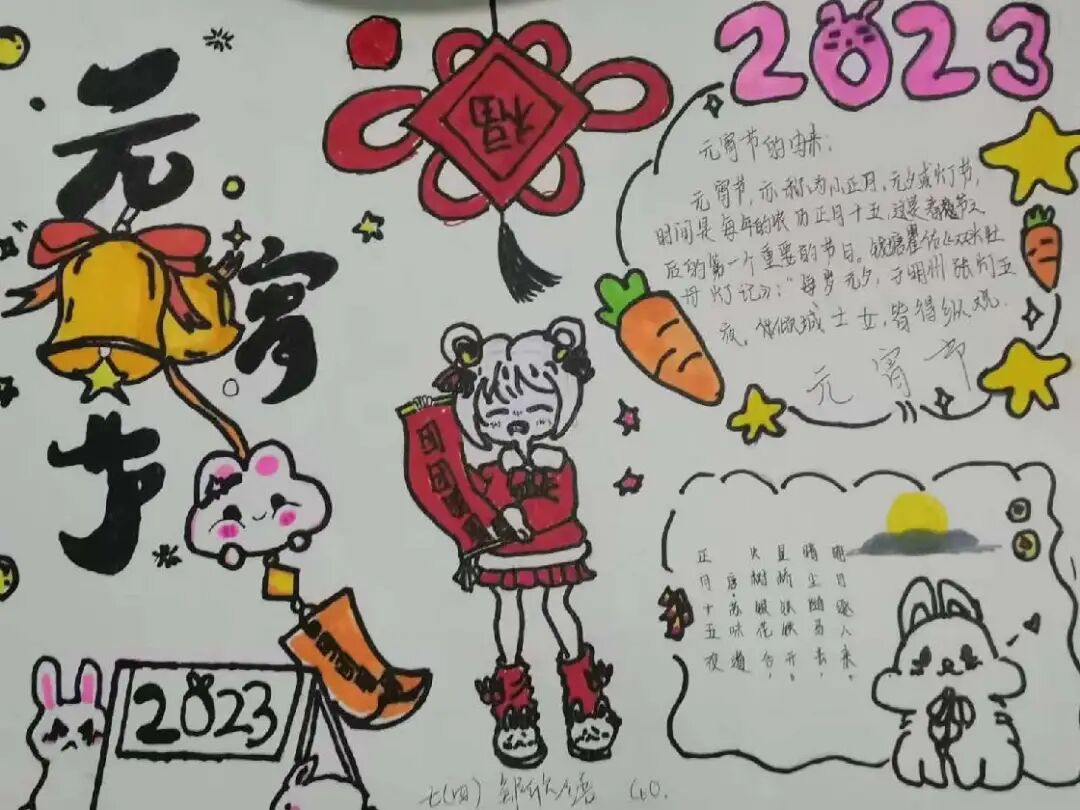 元宵节
福
2023
元宵节的由来:
元宵节,亦称为小正月、元夕或灯节,
时间是每年的农历正月十五,这是春节之
后的第一个重要的节日。
丹灯记》:"每岁元夕,于明州张灯五
夜,倾城士女,皆得纵观.
元宵节
团团
正月十五夜
唐·苏味道
火树银花合,
星桥铁锁开。
暗尘随马去,
明月逐人来。
2023
七(四)